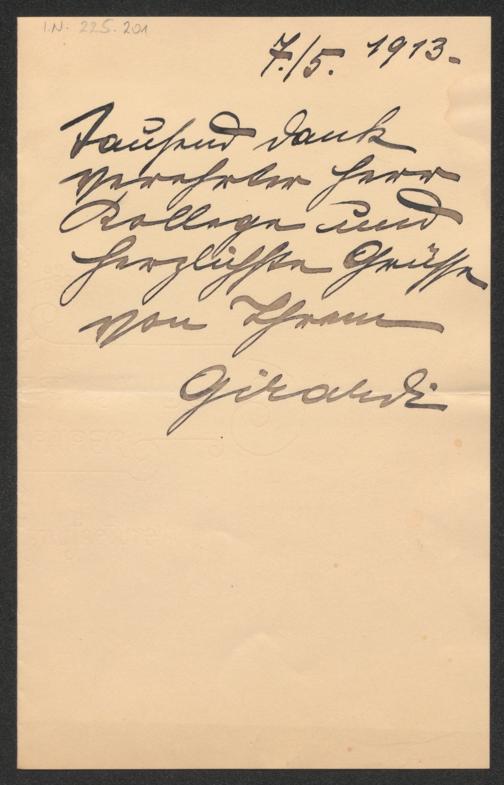 I.N. 225.201
7./5. 1913.
Tausend dank
verehrter Herr
Kollege und
herzlichste Grüsse
von Ihrem
Girardi